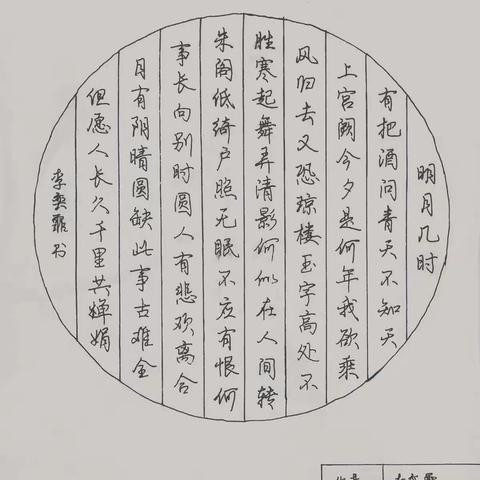 明月几时
有把酒问青天不知天
上宫阙今夕是何年我欲乘
风归去又恐琼楼玉宇高处不
胜寒起舞弄清影何似在人间转
朱阁低绮户照无眠不应有恨何
事长向别时圆人有悲欢离合
月有阴晴圆缺此事古难全
但愿人长久千里共婵娟
李奕霏书